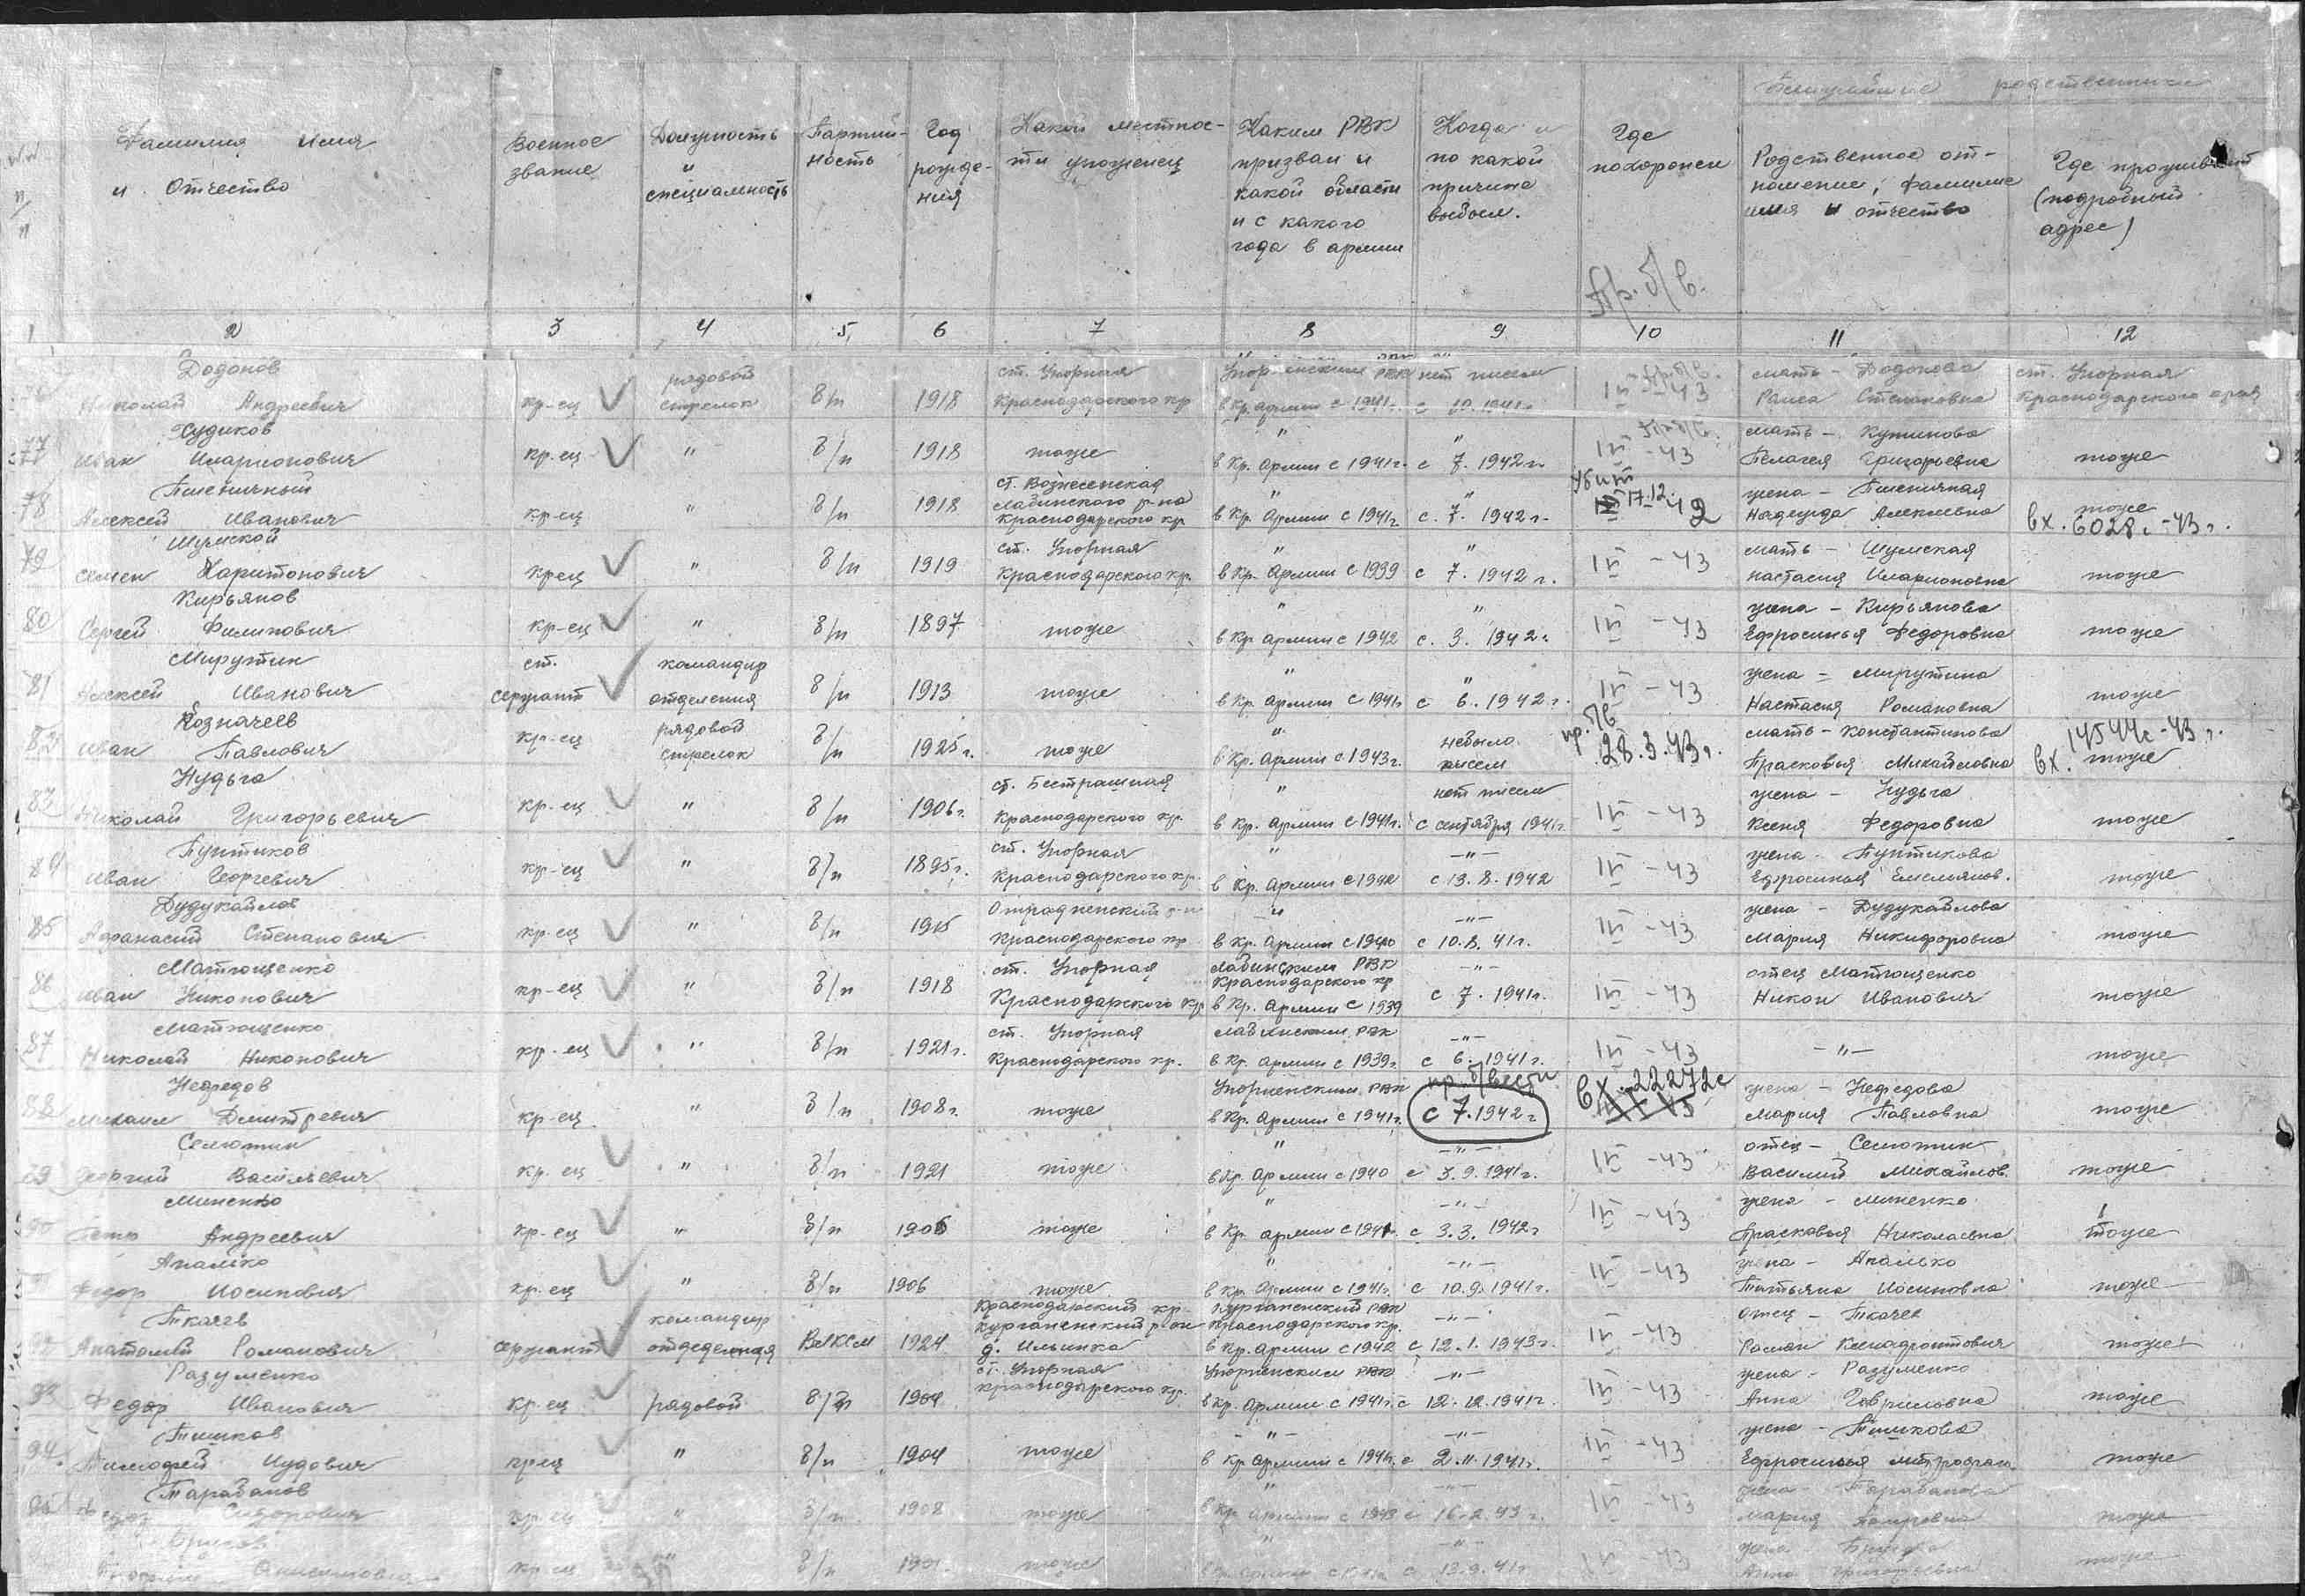 Ближайшие родственники
№№ п/п
Фамилия Имя и Отчество
Военное звание
Должность и специальность
Партий-ность
Год рожде-ния
Какой местнос-ти уроженец
Каким РВК призван и какой области и с какого года в армии
Когда и по какой причине выбыл.
Где похоронен
Родственное от-ношение, фамилие имя и отчество
Где проживает (подробный адрес)
пр. б/в.
1 2 3 4 5 6 7 8 9 10 11 12
Додонов Николай Андреевич кр-ец рядовой стрелок б/п 1918 ст. Упорная Краснодарского кр РВК нет писем в Кр. армии с 1941г. с 10.1941г. пр. б/в. IV-43 мать - Додонова Раиса Степановна ст. Упорная Краснодарского края
77 Судиков Иван Иларионович кр-ец " б/п 1918 тоже " в Кр. Армии с 1941г. " с 7. 1942г. пр. б/в. IV-43 мать - Пелагея Григорьевна тоже
78 Пшеничный Алексей Иванович кр-ец " б/п 1918 ст. Вознесенская Лабинского р-на Краснодарского кр " в Кр. Армии с 1941г. " с 7. 1942г. Убит 17.12.42 жена - Пшеничная Надежда Алексеевна тоже вх. 6028с-43г.
79 Шумской Семен Харитонович кр-ец " б/п 1919 ст. Упорная Краснодарского кр. " в Кр. Армии с 1939 " с 7. 1942г. IV-43 мать - Шумская Настасия Иларионовна тоже
80 Кирьянов Сергей Филипович кр-ец " б/п 1897 тоже " в Кр. армии с 1942 " с. 3. 1942г. IV-43 жена - Кирьянова Ефросинья Федоровна тоже
81 Мирутин Алексей Иванович ст. сержант командир отделения б/п 1913 тоже " в Кр. армии с 1941г " с 6. 1942г. IV-43 жена - Мирутина Настасия Романовна тоже
82 Козначеев Иван Павлович кр-ец рядовой стрелок б/п 1925г. тоже " в Кр. Армии с 1943г. небыло писем пр. б/в 28.3.43г. мать - Константинова Прасковья Михайловна тоже вх. 14544с-43г.
83 Нудьга Николай Григорьевич кр-ец " б/п 1906г. ст. Бестрашная Краснодарского кр. " в Кр. Армии с 1941г. нет писем с сентября 1941г. IV-43 жена - Нудьга Ксеня Федоровна тоже
84 Пунтиков Иван Георгевич кр-ец " б/п 1895г. ст. Упорная Краснодарского кр. " в Кр. Армии с 1942 -"- с 13.8.1942 IV-43 жена - Пунтикова Ефросинья Емельянов. тоже
85 Дудукайлов Афанасий Степанович кр-ец " б/п 1915 Отрадненский р-н Краснодарского кр -"- в Кр. Армии с 1940 -"- с 10.8.41г. IV-43 жена - Дудукайлова Мария Никифоровна тоже
86 Матющенко Иван Никонович кр-ец " б/п 1918 ст. Упорная Краснодарского кр Лабинским РВК Краснодарского кр в Кр. Армии с 1939 -"- с 7. 1941г. IV-43 отец Матющенко Никон Иванович тоже
87 Матющенко Николай Никонович кр-ец " б/п 1921г. ст. Упорная Краснодарского кр. Лабинским РВК в Кр. Армии с 1939г. -"- с 6. 1941г. IV-43 -"- тоже
88 Нефедов Михаил Дмитревич кр-ец " б/п 1908г. тоже Упорненским РВК в Кр. Армии с 1941г. пр. б/вести с 7.1942г вх. 22272с жена - Нефедова Мария Павловна тоже
89 Семютин Георгий Васильевич кр. ец " б/п 1921 тоже " в Кр. Армии с 1940 -"- с 3.9.1941г. IV-43 отец - Семютин Василий Михайлов. тоже
90 Миненко Петр Андреевич кр-ец " б/п 1905 тоже " в Кр. армии с 1941 -"- с 3.3. 1942г IV-43 жена - Миненко Прасковья Николаевна тоже
91 Апалько Федор Иосипович кр. ец " б/п 1906 тоже " в Кр. Армии с 1941г. -"- с 10.9.1941г. IV-43 жена - Апалько Татьяна Иосиповна тоже
92 Ткачев Анатолий Романович сержант командир отделения ВЛКСМ 1924 Краснодарский кр. Курганенский р-он д. Ильинка Курганенский РВК Краснодарского кр. в Кр. армии с 1942 -"- с 12.1.1943г. IV-43 отец - Ткачев Роман тоже
93 Разуменко Федор Иванович кр. ец рядовой б/п 1904 ст. Упорная Краснодарского кр. Упорненским РВК в Кр. армии с 1941г. -"- с 12.12.1941г. IV-43 жена - Разуменко Анна Гавриловна тоже
94. Тишков Тимофей Иудович кр-ец " б/п 1904 тоже -"- в Кр Армии с 1941г. -"- с 2.11.1941г. IV-43 жена - Тишкова Ефросинья тоже
95 Тарабанов Федор Сидорович кр. ец " б/п 1908 тоже " в Кр. Армии с 1943 -"- с 16.2.43г. IV-43 жена - Тарабанова Мария тоже
кр-ец " б/п тоже " -"- с 13.9.41г IV-43 жена - Анна Григорьевна тоже